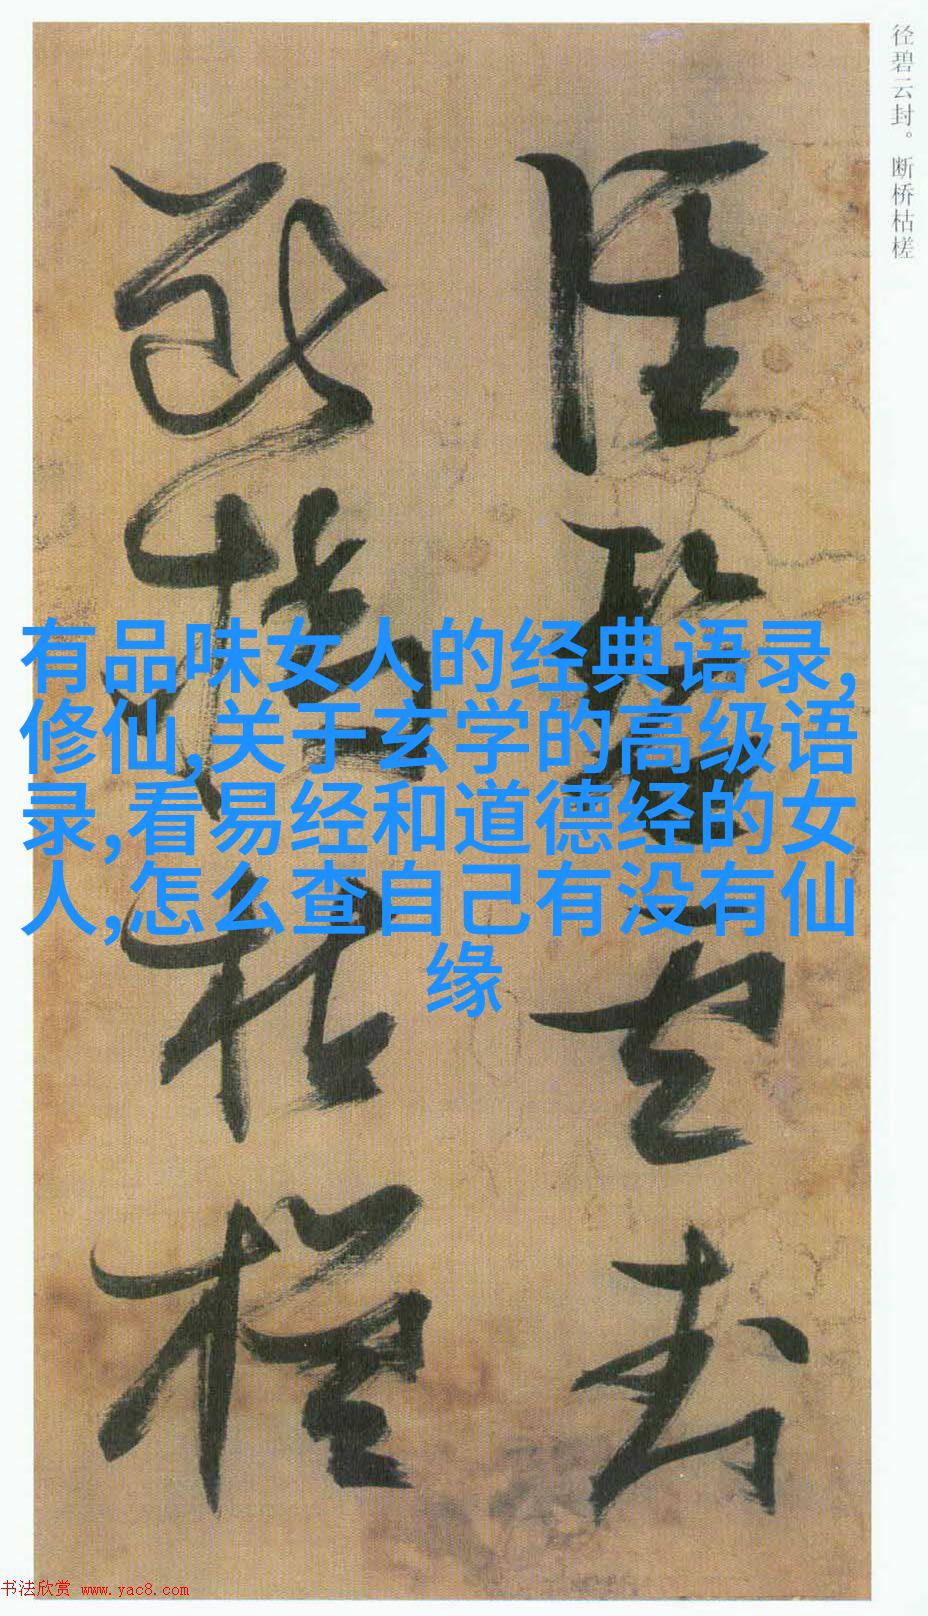 径碧云封。断桥枯槎
径碧云封
断桥枯槎
有品味女人的经典语录,
修仙,关于玄学的高级语
录,看易经和道德经的女
人,怎么查自己有没有仙
缘
书法欣赏 www.yac8.com